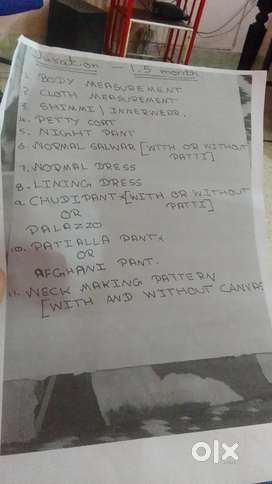 Duration - 1.5 month
1. BODY MEASUREMENT
2. CLOTH MEASUREMENT
3. SHIMMI / INNERWEAR.
4. PETTY COAT
5. NIGHT PANT
6. NORMAL SALWAR [WITH OR WITHOUT
PATTI]
7. NORMAL DRESS
8. LINING DRESS
9. CHUDIPANT [WITH OR WITHOUT
PATTI]
OR
PALAZZO
10. PATIALLA PANT
OR
AFGHANI PANT.
11. NECK MAKING PATTERN
[WITH AND WITHOUT CANVAS
olx